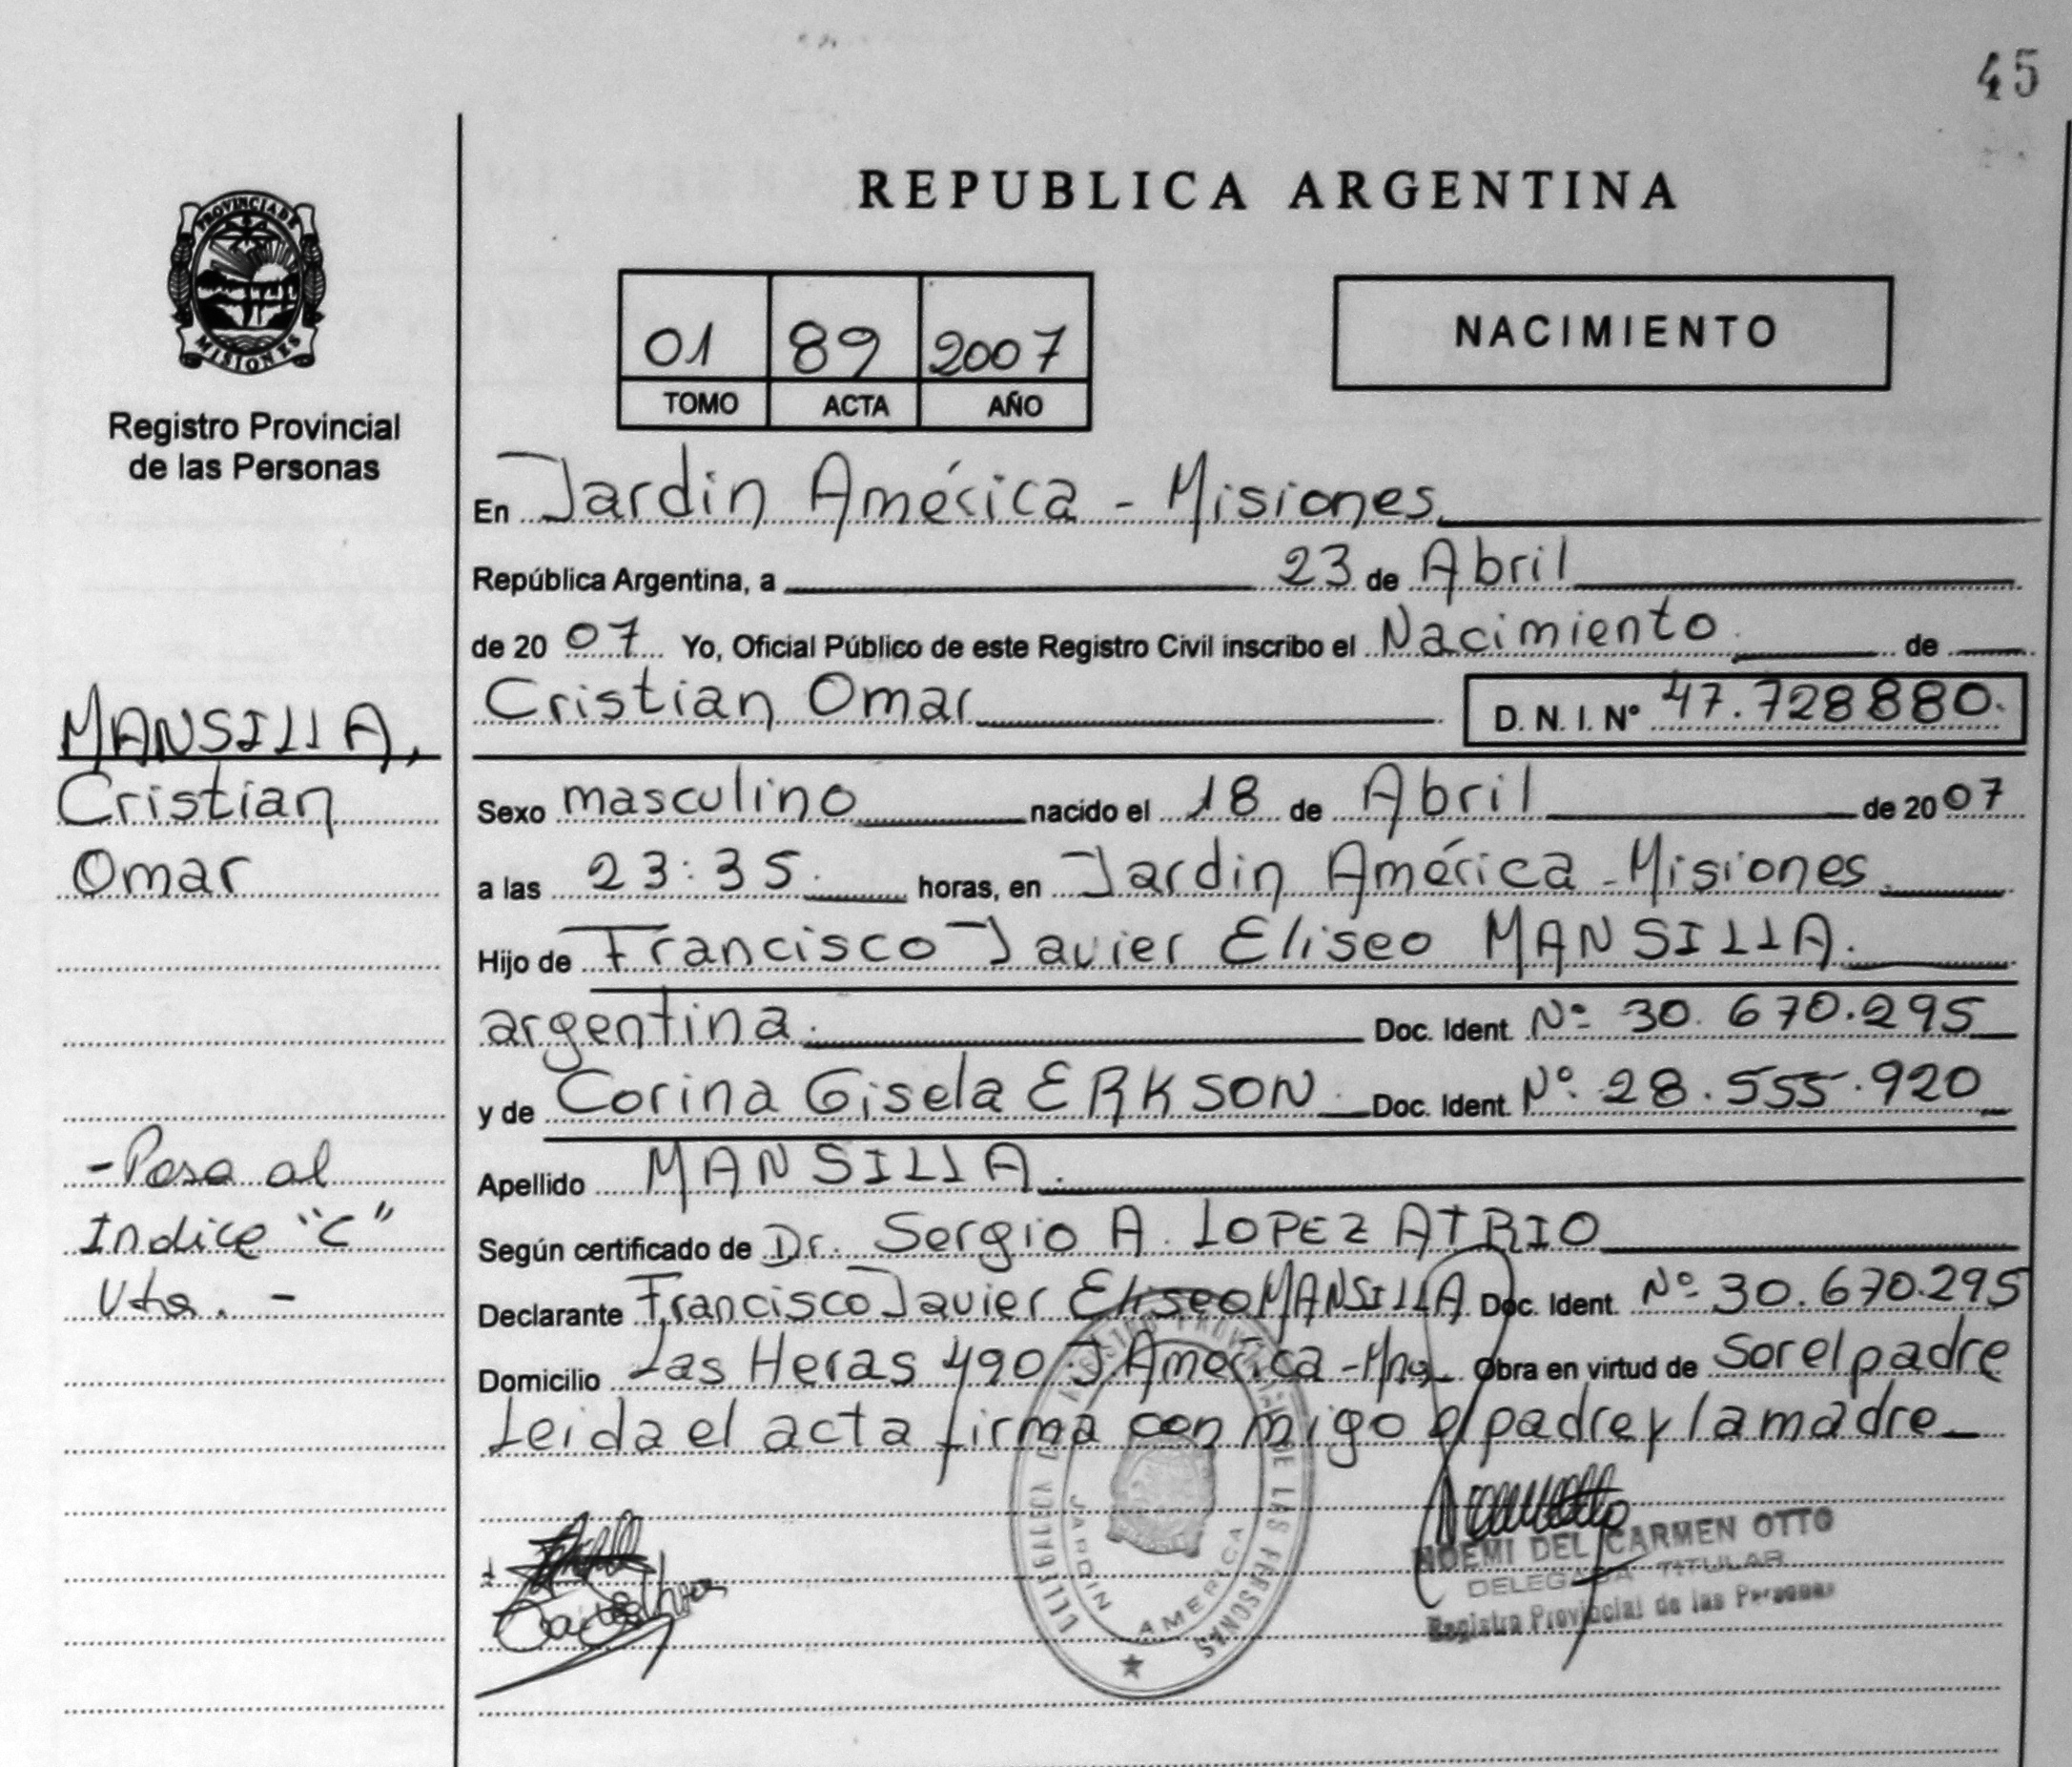 45
PROVINCIA DE
MISIONES
Registro Provincial
de las Personas
REPUBLICA ARGENTINA
01 89 2007
TOMO ACTA AÑO
NACIMIENTO
En Jardin América - Misiones
República Argentina, a 23 de Abril
de 20 07 Yo, Oficial Público de este Registro Civil inscribo el Nacimiento de
Cristian Omar D. N. I. Nº 47.728880.
MANSILLA,
Cristian
Omar
Sexo masculino nacido el 18 de Abril de 20 07
a las 23:35. horas, en Jardin América - Misiones
Hijo de Francisco Javier Eliseo MANSILLA.
argentina. Doc. Ident. Nº 30.670.295
y de Corina Gisela ERKSON. Doc. Ident. Nº. 28.555.920
Apellido MANSILLA.
Según certificado de Dr. Sergio A. LOPEZ ATRIO
Declarante Francisco Javier Eliseo MANSILLA Doc. Ident. Nº 30.670.295
Domicilio Las Heras 490 J. América - Mnes Obra en virtud de Sor el padre
Leida el acta firma con migo el padre y la madre
- Pasa al
Indice "C"
Vta. -
REGISTRO PROVINCIAL DE LAS PERSONAS
JARDIN AMERICA
NOEMI DEL CARMEN OTTO
DELEGADA TITULAR
Registro Provincial de las Personas